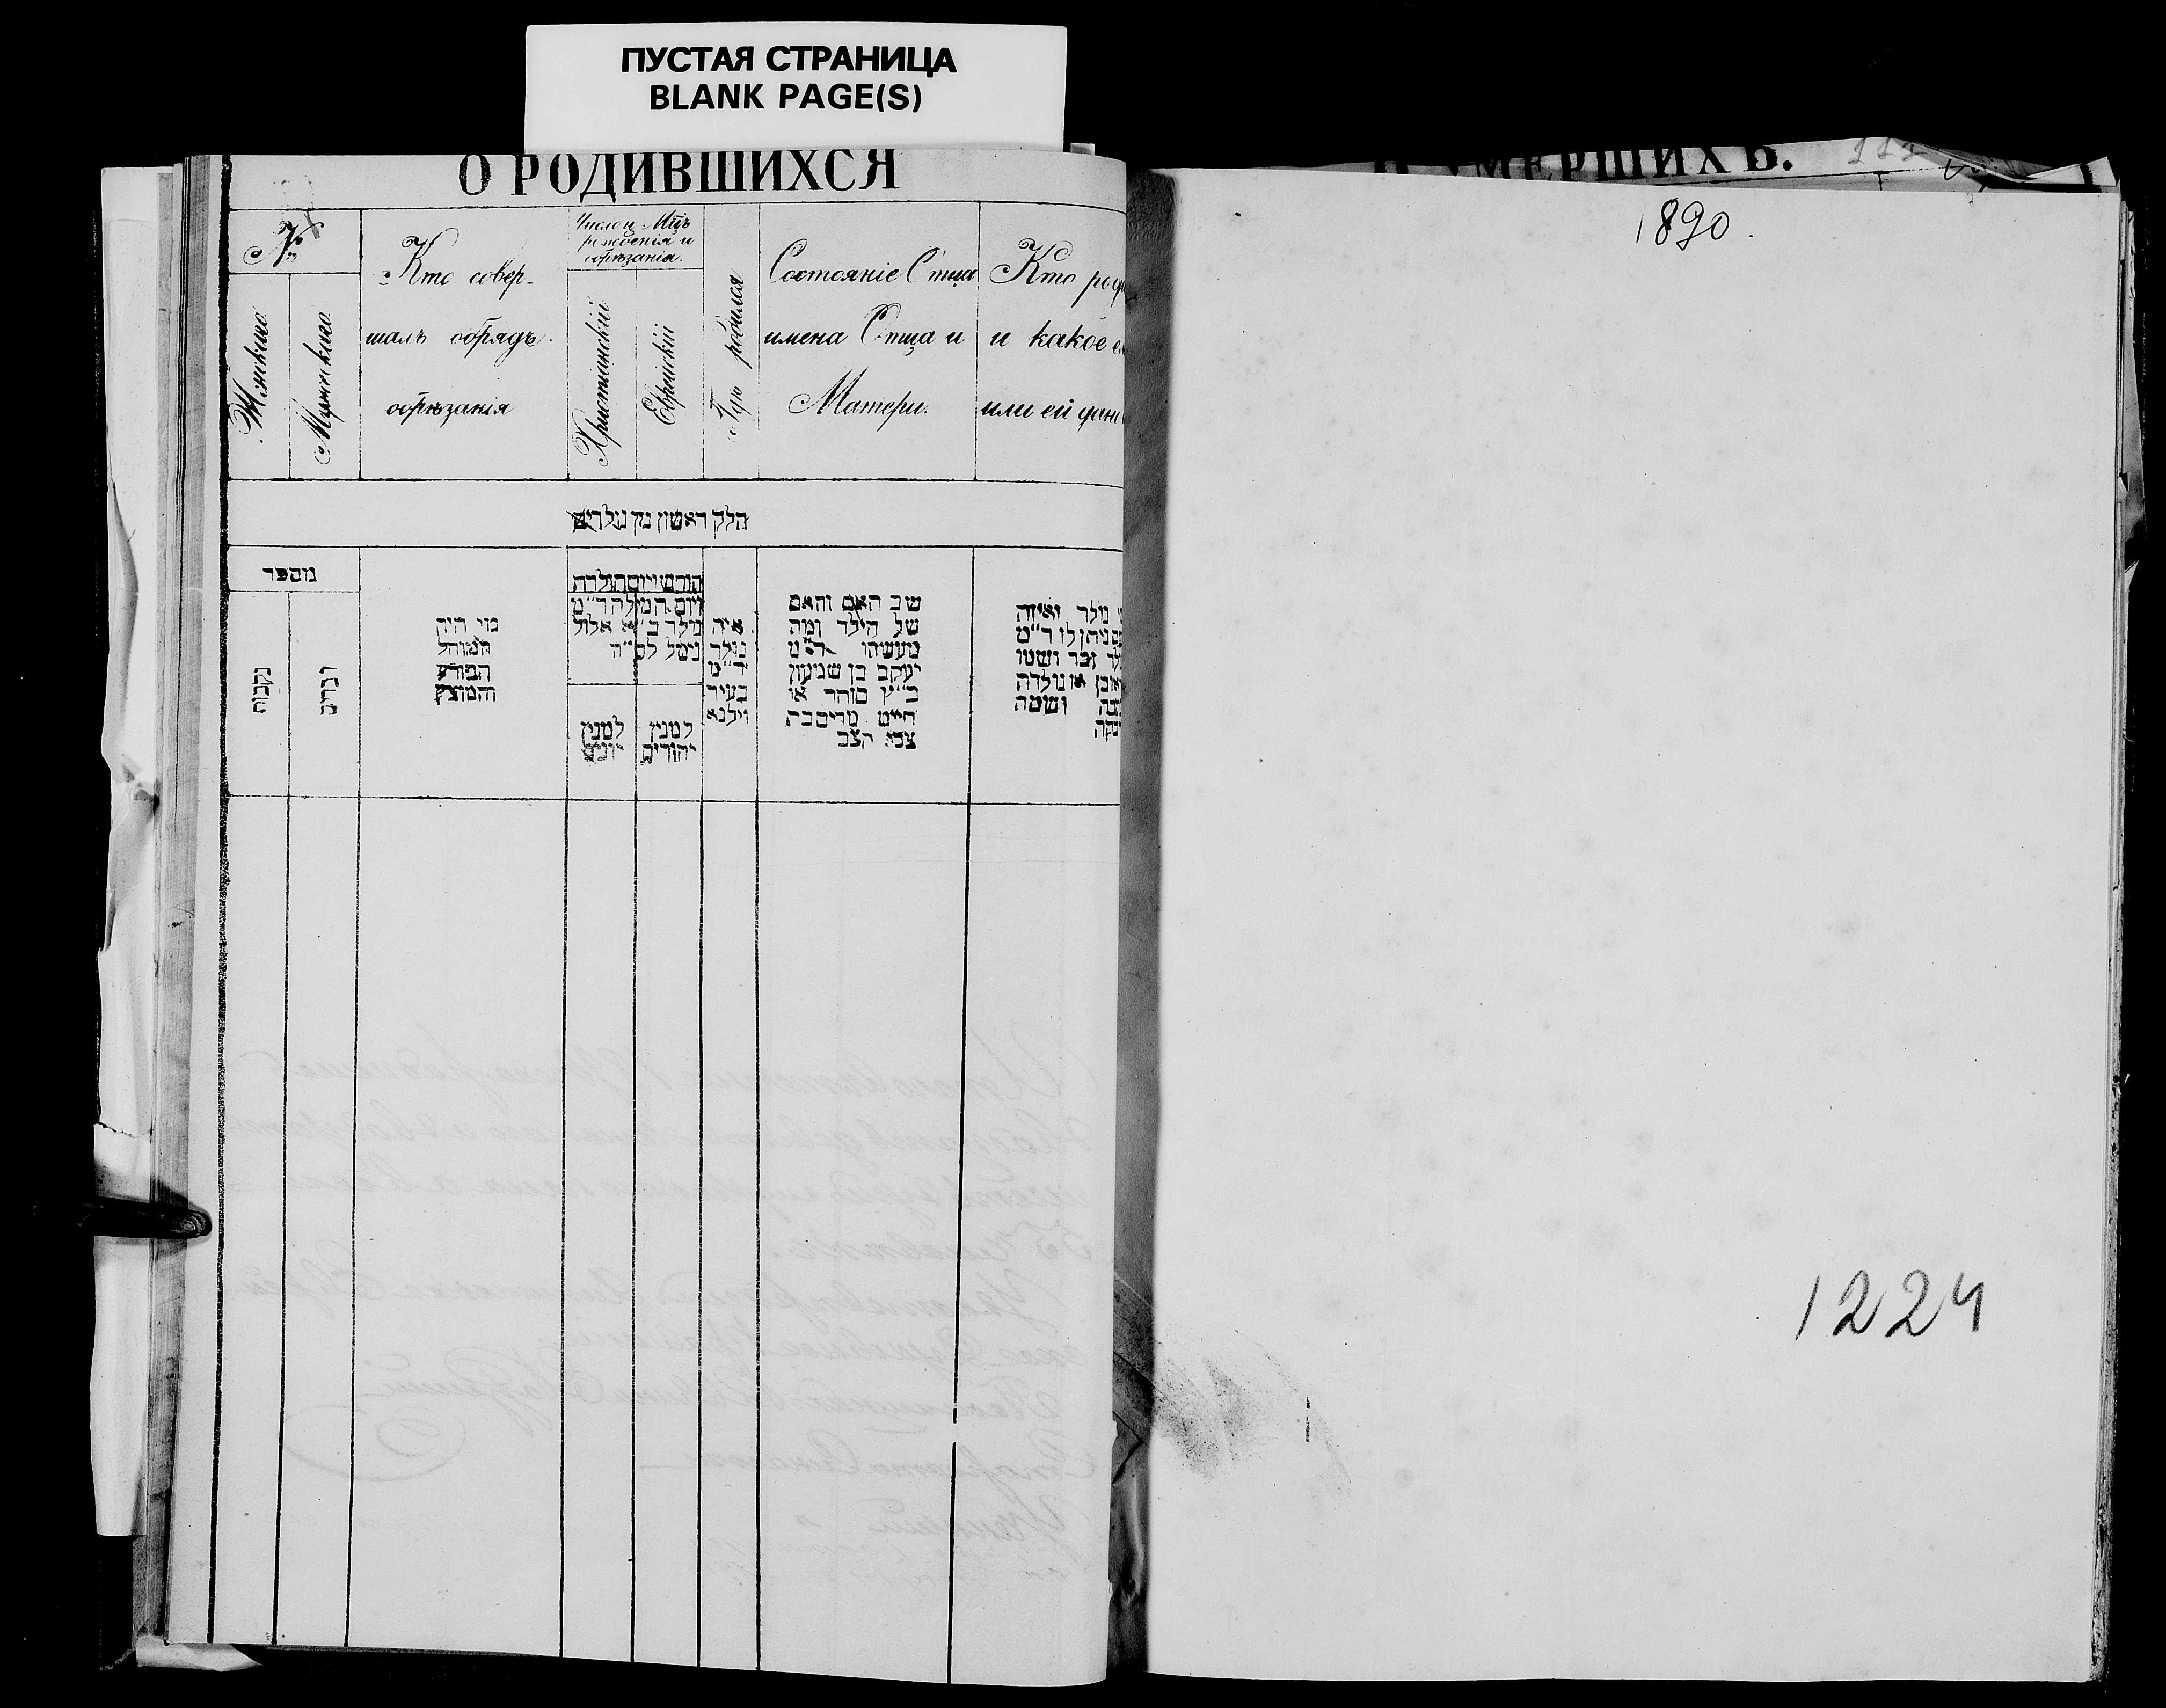 ПУСТАЯ СТРАНИЦА
BLANK PAGE(S)
О РОДИВШИХСЯ
№
Женскаго
Мужескаго
Кто совер-
шалъ обрядъ
обрѣзанія
Число и Мѣць
рожденія и
обрѣзанія.
Христіанскій
Еврейскій
Гдѣ родился
Состояніе Отца
имена Отца и
Матери.
Кто род
и какое е
или ей дано
חלק ראשון מן נולדים
מספר
נקבות
זכרים
מי היה
המוהל
הפורע
והמוצץ
חודש ויום הולדת
ויום המילה ד״מ
נולד ב״א אלול
נימל לס״ה
למנין
יונים
למנין
יהודים
איה
נולד
ד״מ
בעיר
וילנא
שב האם והאם
של הילד ומה
מעשהו ד״מ
יעקב בן שמעון
כ״ץ סוחר או
חייט מרים בת
צבי הצב
מי נולד ואיזה
שם ניתן לו ד״מ
נולד זכר ושמו
ראובן או נולדה
נקבה ושמה
УМЕРШИХЪ.
1890.
1224